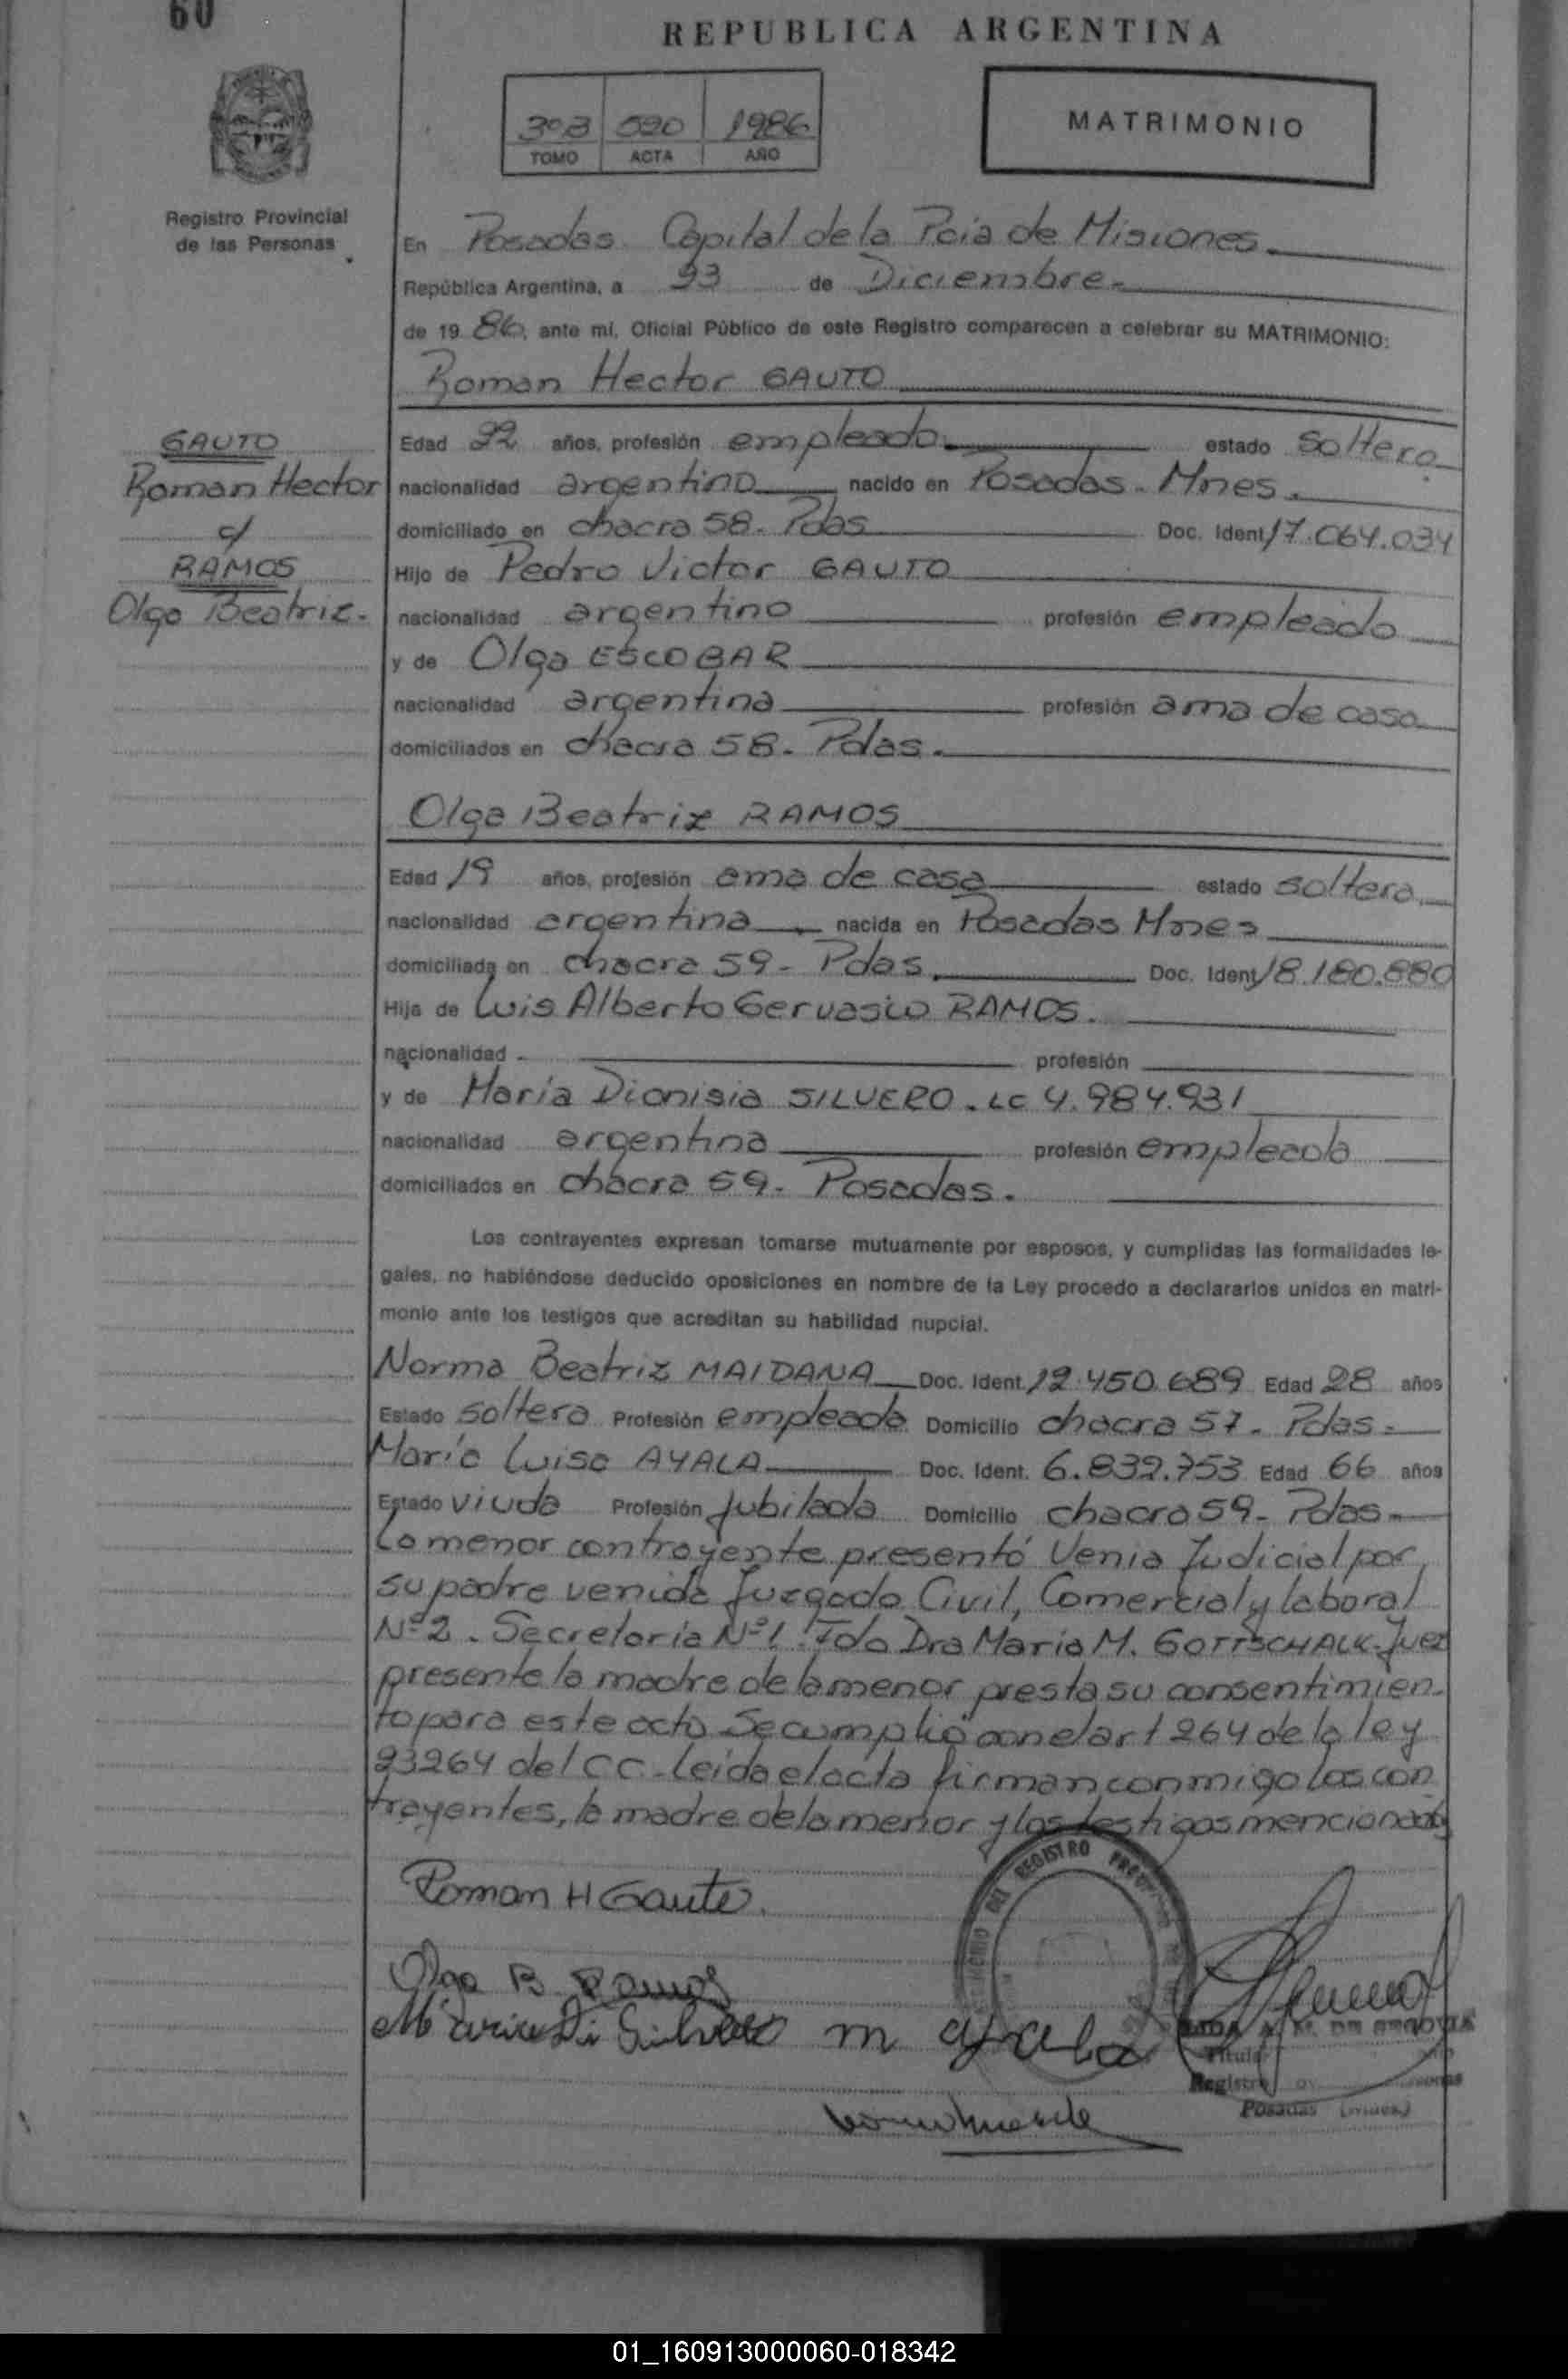 60
REPUBLICA ARGENTINA
303 520 1986
TOMO ACTA AÑO
MATRIMONIO
Registro Provincial
de las Personas
En Posadas Capital de la Pcia de Misiones.
República Argentina, a 23 de Diciembre.
de 19 86, ante mí, Oficial Público de este Registro comparecen a celebrar su MATRIMONIO:
Roman Hector GAUTO
GAUTO
Roman Hector
c/
RAMOS
Olga Beatriz.
Edad 22 años, profesión empleado estado soltero
nacionalidad argentino nacido en Posadas - Mnes.
domiciliado en chacra 58 - Pdas Doc. Ident 17.064.034
Hijo de Pedro Victor GAUTO
nacionalidad argentino profesión empleado
y de Olga ESCOBAR
nacionalidad argentina profesión ama de casa
domiciliados en chacra 58 - Pdas.
Olga Beatriz RAMOS
Edad 19 años, profesión ama de casa estado soltera
nacionalidad argentina nacida en Posadas Mnes
domiciliada en chacra 59 - Pdas. Doc. Ident 18.180.880
Hija de Luis Alberto Gervasio RAMOS.
nacionalidad - profesión
y de María Dionisia SILVERO. LC 4.984.931
nacionalidad argentina profesión empleada
domiciliados en chacra 59 - Posadas.
Los contrayentes expresan tomarse mutuamente por esposos, y cumplidas las formalidades le-
gales, no habiéndose deducido oposiciones en nombre de la Ley procedo a declararlos unidos en matri-
monio ante los testigos que acreditan su habilidad nupcial.
Norma Beatriz MAIDANA Doc. Ident. 12.450.689 Edad 28 años
Estado soltera Profesión empleada Domicilio chacra 57 - Pdas -
María Luisa AYALA Doc. Ident. 6.839.753 Edad 66 años
Estado viuda Profesión Jubilada Domicilio chacra 59 - Pdas -
La menor contrayente presentó Venia Judicial por
su padre venida Juzgado Civil, Comercial y laboral
Nº 2. Secretoria Nº 1. Fdo Dra Maria M. GOTTSCHALK - Juez
presente la madre de la menor presta su consentimien-
to para este acto Se cumplió con el art 264 de la ley
23264 del CC - Leida el acta firman conmigo los con
trayentes, la madre de la menor y los testigos mencionados
Roman H Gauto.
Olga B. Ramos
Maria Di Silvero m ayala
REGISTRO
A. M. DE SEGOVIA
Titular
Registro
Posadas (mnes.)
01_160913000060-018342